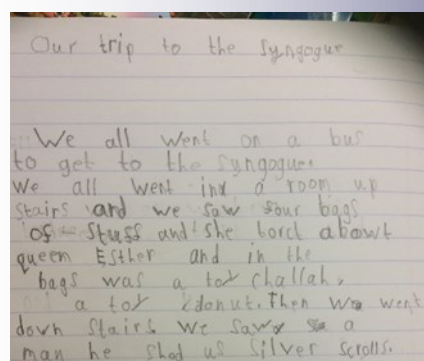 Our trip to the Syngogue
We all went on a bus
to get to the syngogue.
We all went in a room up
stairs and we saw four bags
of stuff and she torct abowt
queen Esther and in the
bags was a toy challah,
a toy donut. Then we went
down stairs. We saw a
man he shod us silver scrolls.